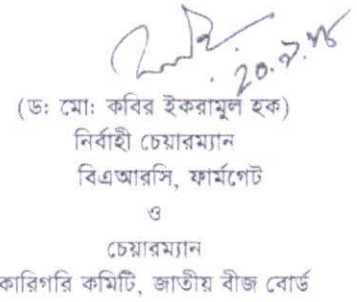 (ড: মো: কবির ইকরামুল হক)
নির্বাহী চেয়ারম্যান
বিএআরসি, ফার্মগেট
ও
চেয়ারম্যান
কারিগরি কমিটি, জাতীয় বীজ বোর্ড